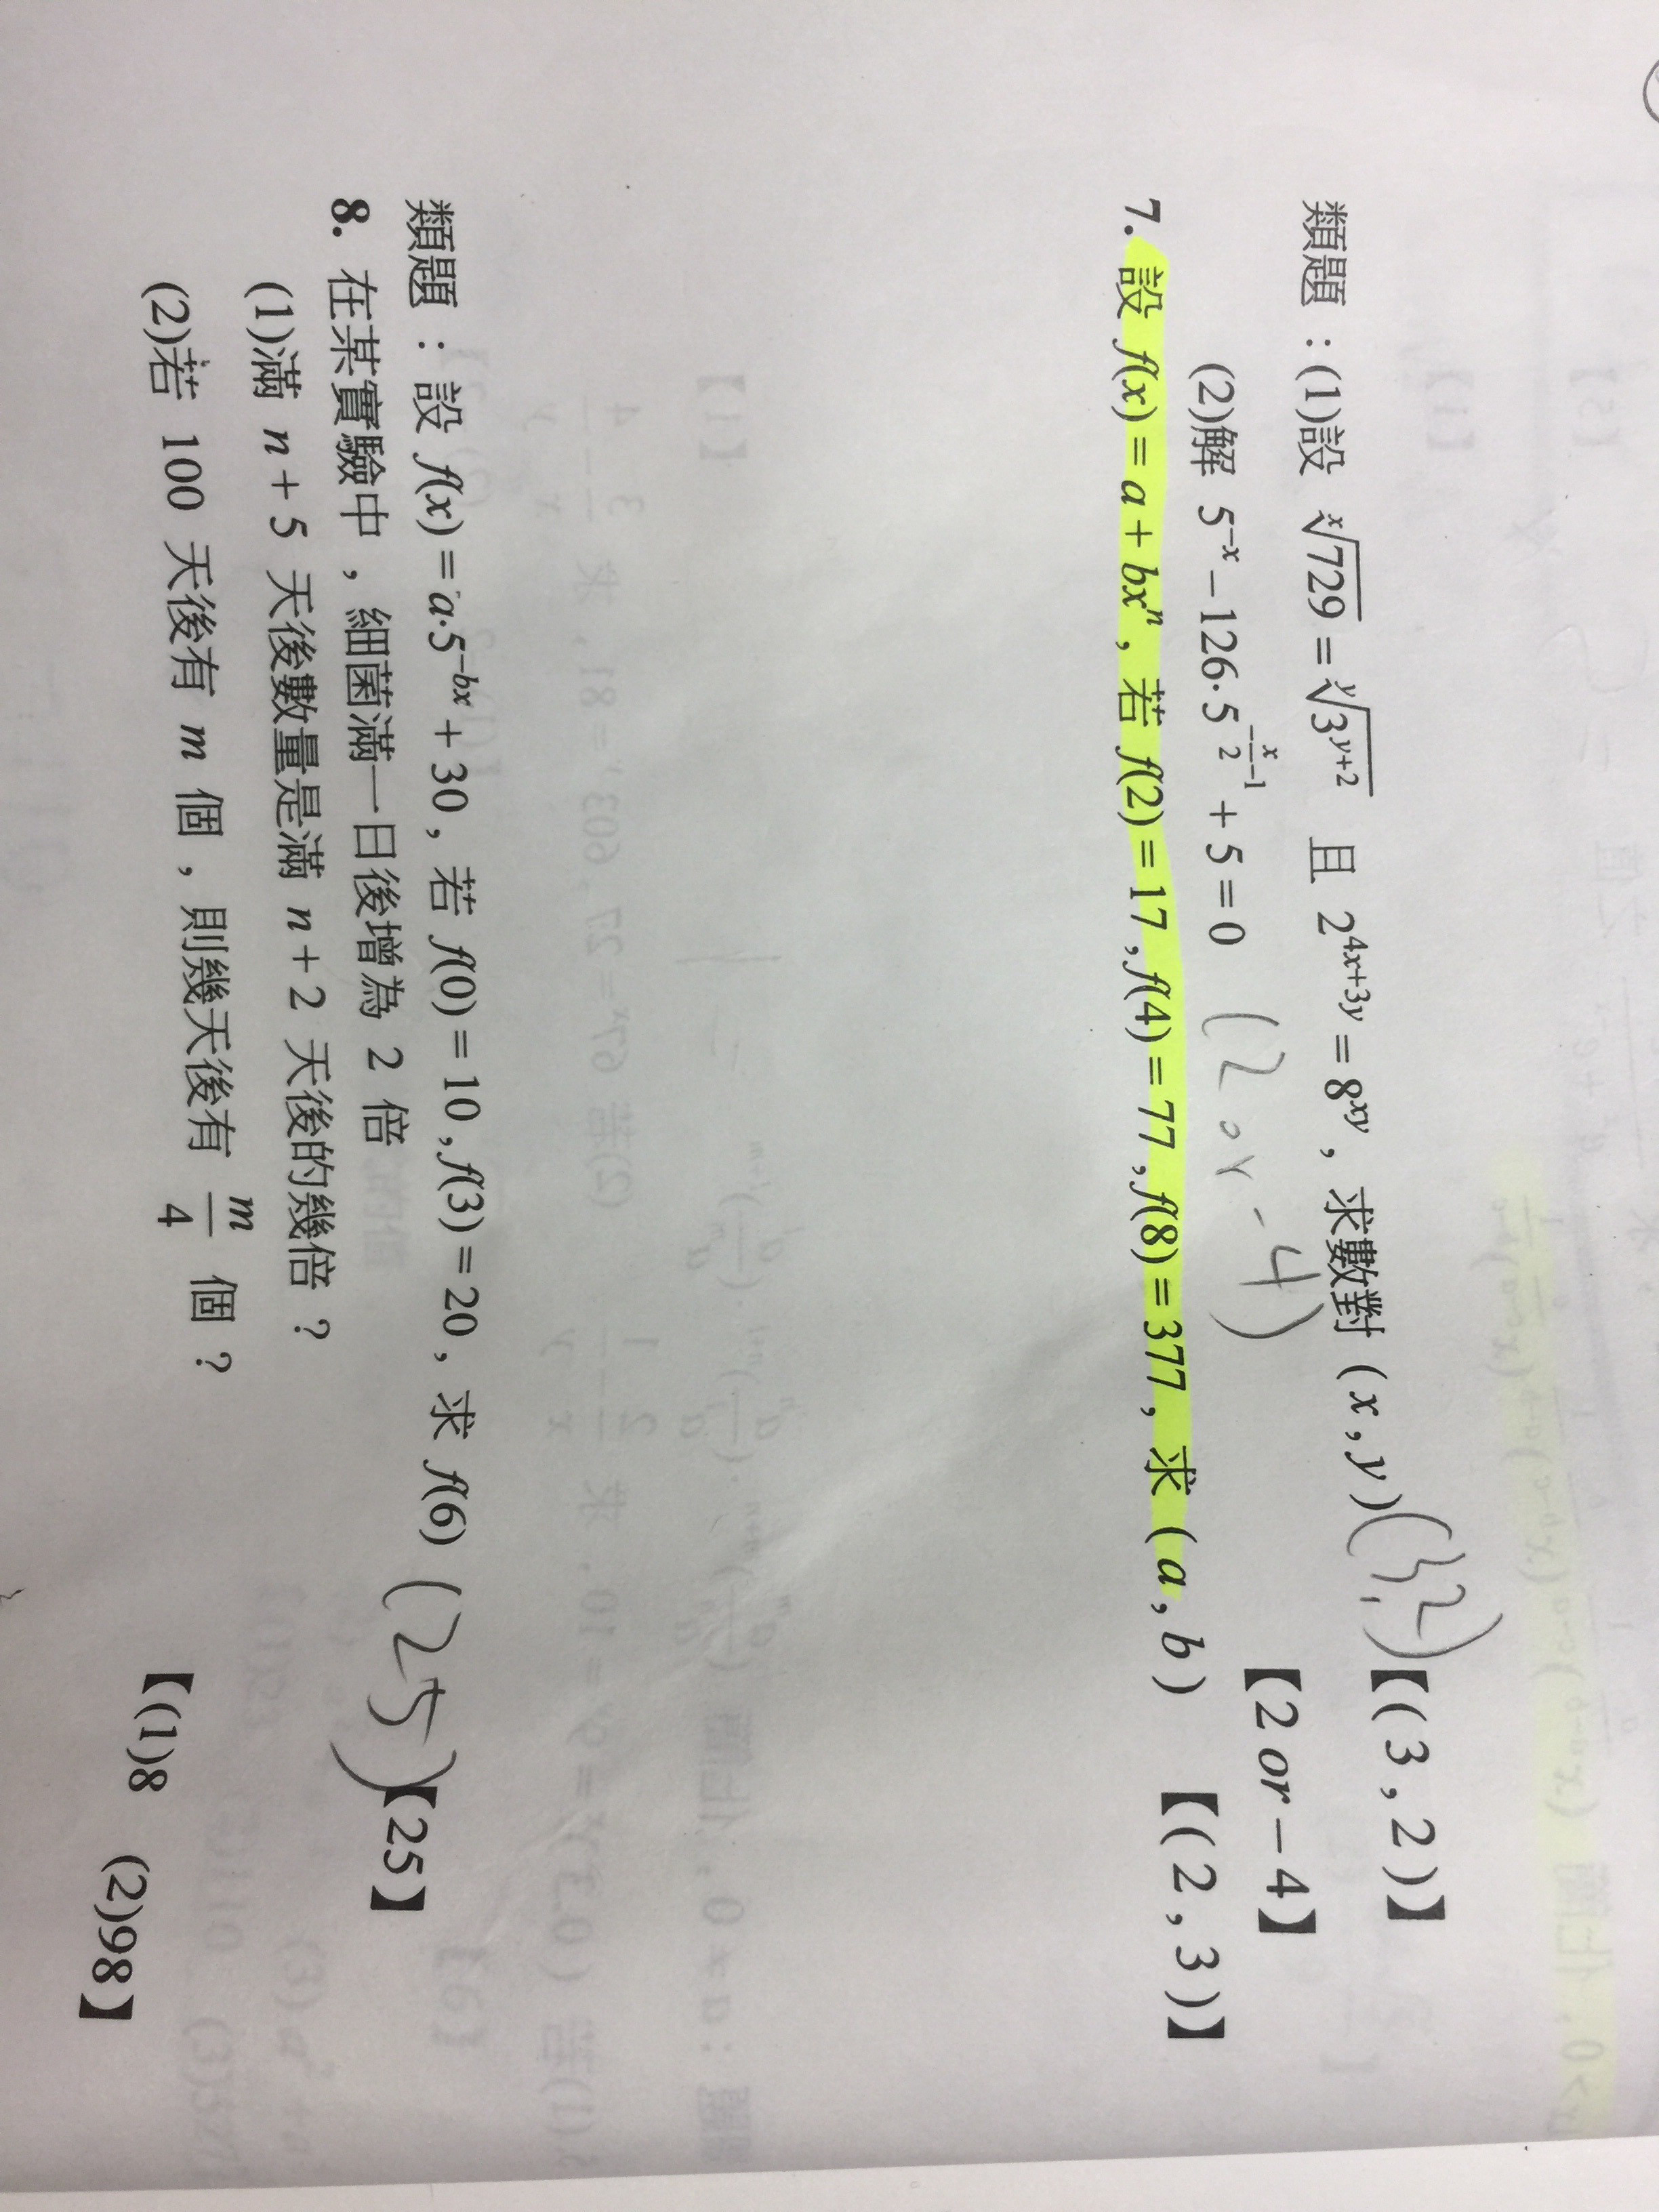 類題：(1)設 ˣ√729 = ʸ√3^(y+2) 且 2^(4x+3y) = 8^(xy)，求數對 (x, y) (3, 2) 【(3, 2)】
(2)解 5^(-x) − 126·5^(-x/2 −1) + 5 = 0 (2 or -4) 【2 or −4】
7. 設 f(x) = a + bxⁿ，若 f(2) = 17, f(4) = 77, f(8) = 377，求 (a, b) 【(2, 3)】
類題：設 f(x) = a·5^(-bx) + 30，若 f(0) = 10, f(3) = 20，求 f(6) (25) 【25】
8. 在某實驗中，細菌滿一日後增為 2 倍
(1)滿 n + 5 天後數量是滿 n + 2 天後的幾倍？
(2)若 100 天後有 m 個，則幾天後有 m/4 個？
【(1)8 (2)98】